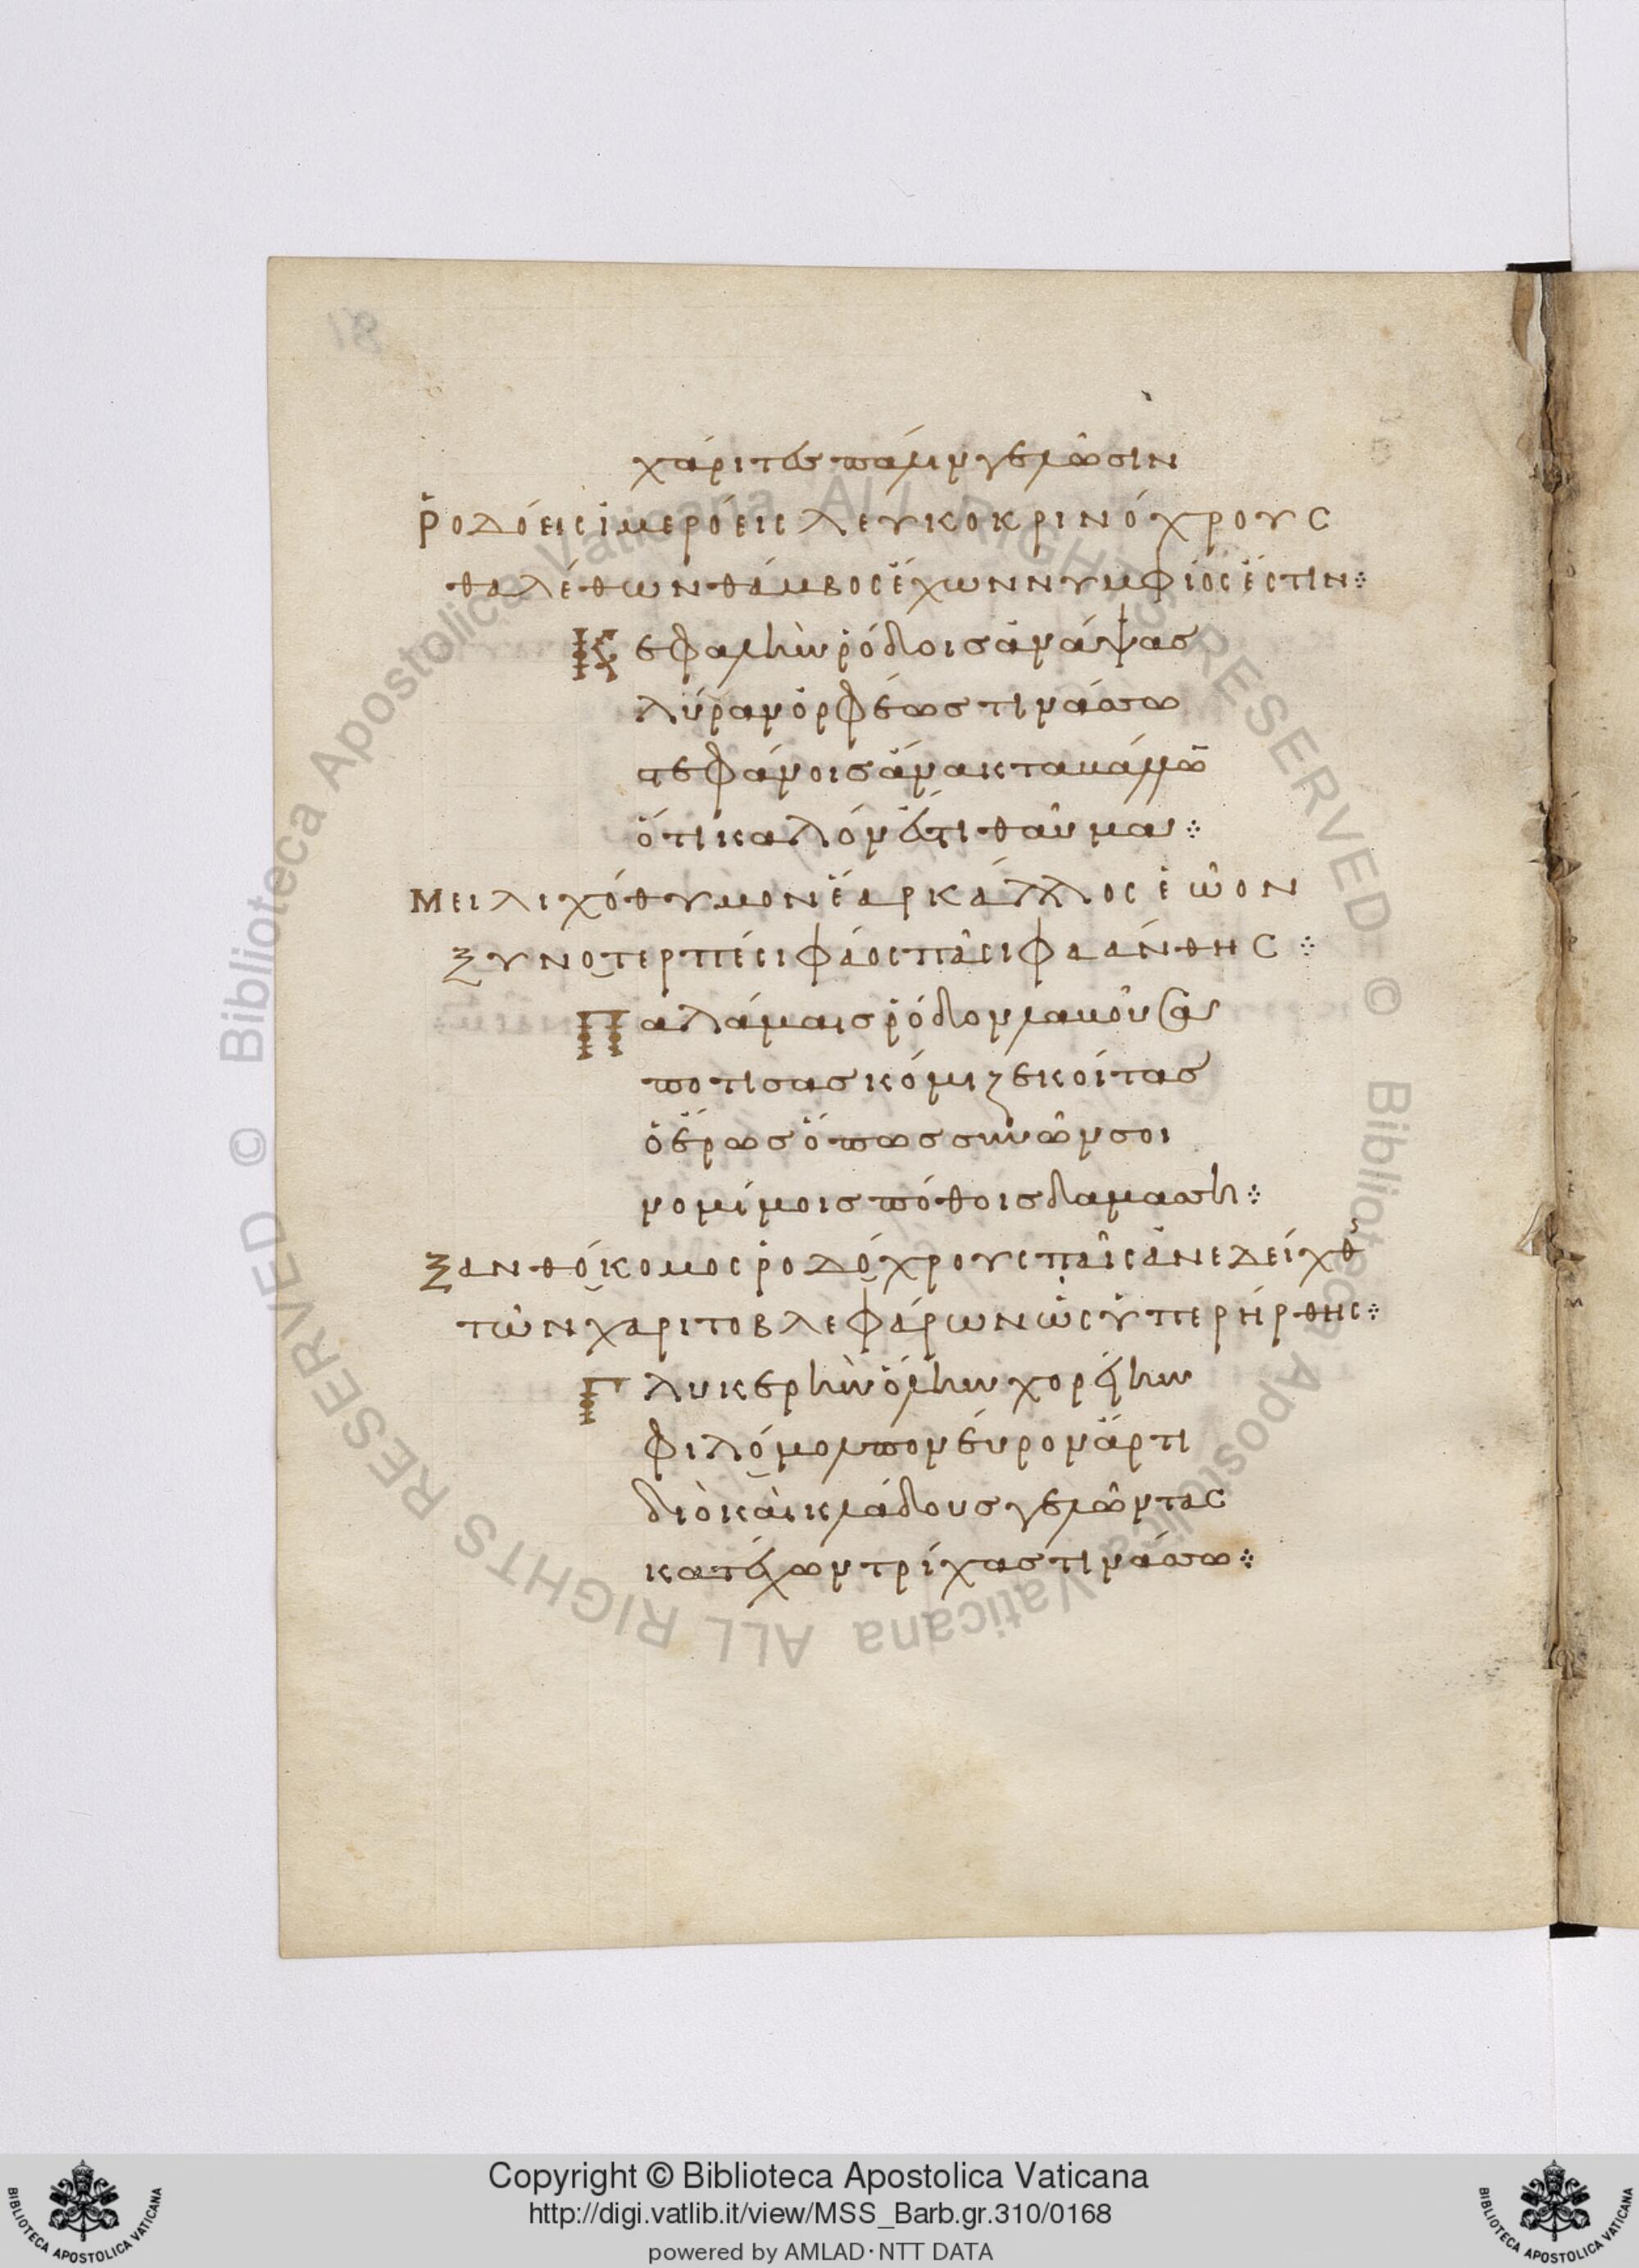 χάριτες πάλιν γελῶσιν
Ῥοδόεις ἱμερόεις λευκοκρινόχρους
θαλέθων θάμβος ἔχων νυμφίος ἐστιν⁘
Κεφαλὴν ῥόδοις ἀνάψας
λύραν ὀρφέως τινάσσω
στεφάνοις ἄνακτα κάμνω
ὅτι καλόν ἐστι θαῦμα⁘
Μειλιχόθυμον ἔαρ κάλλος ἑῶον
ξυνοτερπέσι φάος πᾶσι φαάνθης⁘
Παλάμαις ῥόδον λακούσας
ποτισας κόμιζε κοίτας
ὁ ἔρως ὅπως συνών σοι
νομίμοις πόθοις δαμάσση⁘
Ξανθόκομος ῥοδόχρους παῖς ἀνεδείχθ
τῶν χαριτοβλεφάρων ὡς ὑπερήρθης⁘
Γλυκερὴν ὅλην χορείην
φιλόμολπον εὗρον ἄρτι
διὸ καὶ κλάδους γελῶντας
κατέχων τρίχας τινάσσω⁘
Copyright © Biblioteca Apostolica Vaticana
http://digi.vatlib.it/view/MSS_Barb.gr.310/0168
powered by AMLAD·NTT DATA
BIBLIOTECA APOSTOLICA VATICANA
BIBLIOTECA APOSTOLICA VATICANA
© Biblioteca Apostolica Vaticana ALL RIGHTS RESERVED © Biblioteca Apostolica Vaticana ALL RIGHTS RESERVED